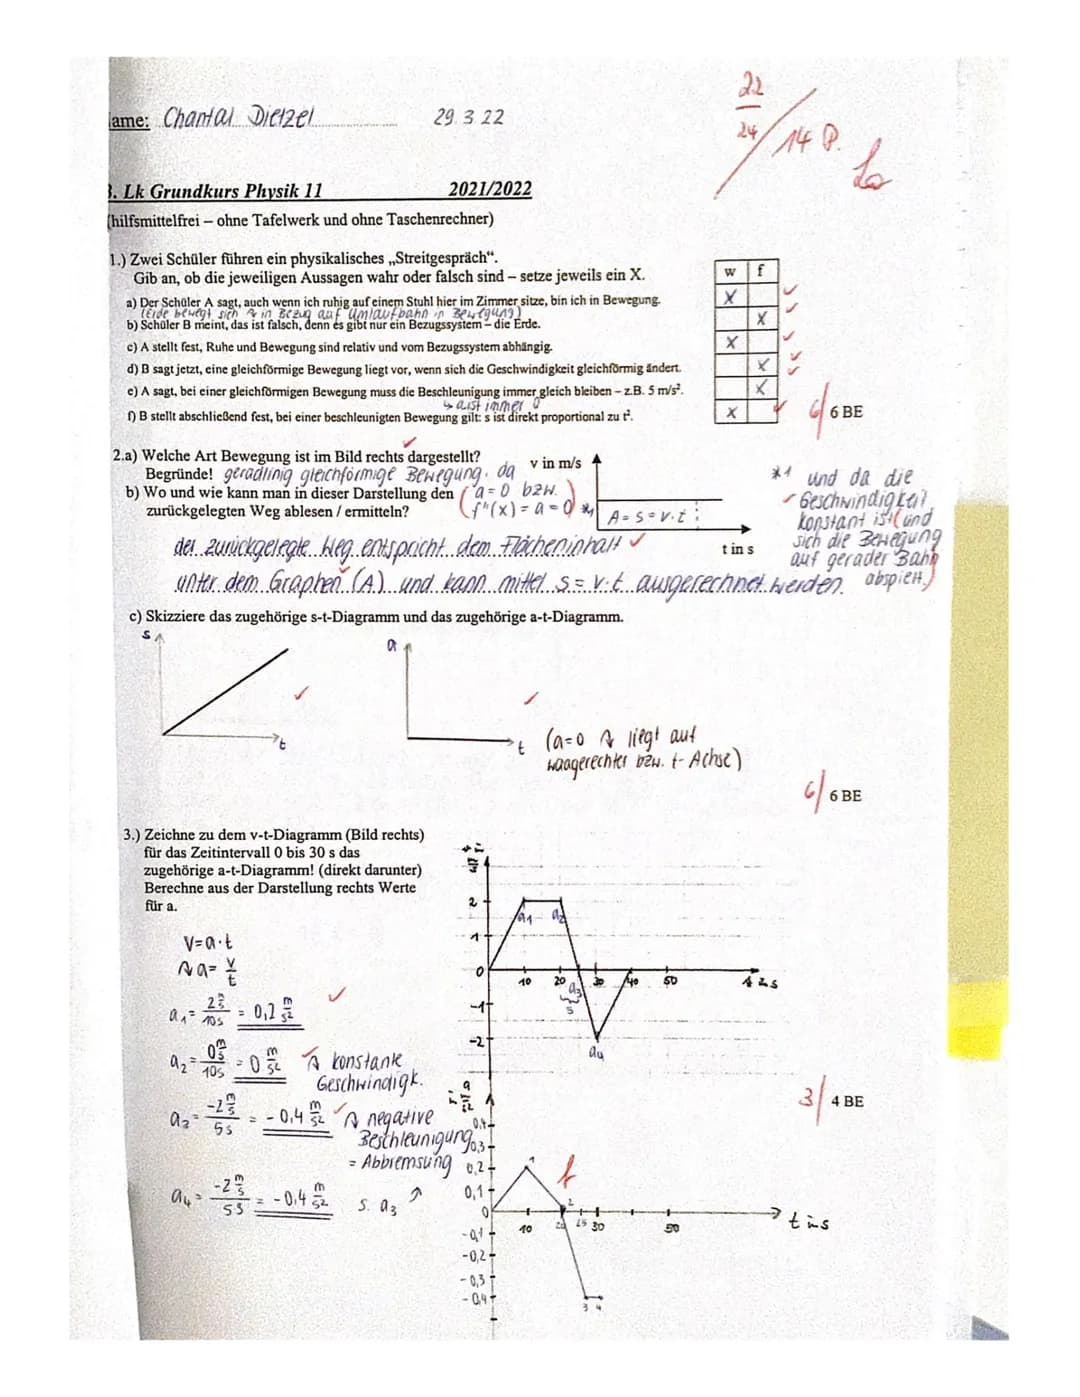 ame: Chantal Dietzel 29.3.22
22
24 / 14 P.
3. Lk Grundkurs Physik 11 2021/2022
(hilfsmittelfrei – ohne Tafelwerk und ohne Taschenrechner)
1.) Zwei Schüler führen ein physikalisches „Streitgespräch“.
Gib an, ob die jeweiligen Aussagen wahr oder falsch sind – setze jeweils ein X.
w f
a) Der Schüler A sagt, auch wenn ich ruhig auf einem Stuhl hier im Zimmer sitze, bin ich in Bewegung. X
(Erde bewegt sich in Bezug auf Umlaufbahn in Bewegung)
b) Schüler B meint, das ist falsch, denn es gibt nur ein Bezugssystem – die Erde. X
c) A stellt fest, Ruhe und Bewegung sind relativ und vom Bezugssystem abhängig. X
d) B sagt jetzt, eine gleichförmige Bewegung liegt vor, wenn sich die Geschwindigkeit gleichförmig ändert. X
e) A sagt, bei einer gleichförmigen Bewegung muss die Beschleunigung immer gleich bleiben – z.B. 5 m/s². X
↳ a ist immer 0
f) B stellt abschließend fest, bei einer beschleunigten Bewegung gilt: s ist direkt proportional zu t². X
6/ 6 BE
2.a) Welche Art Bewegung ist im Bild rechts dargestellt?
Begründe! geradlinig gleichförmige Bewegung, da
(a = 0 bzw.
f''(x) = a = 0) *1
b) Wo und wie kann man in dieser Darstellung den
zurückgelegten Weg ablesen / ermitteln?
v in m/s
A = s = v·t
t in s
*1 und da die
Geschwindigkeit
konstant ist (und
sich die Bewegung
auf gerader Bahn
abspielt.)
der zurückgelegte Weg entspricht dem Flächeninhalt
unter dem Graphen (A) und kann mittel s = v·t ausgerechnet werden.
c) Skizziere das zugehörige s-t-Diagramm und das zugehörige a-t-Diagramm.
s
t
a
t
(a=0 liegt auf
waagerechter bzw. t-Achse)
6/ 6 BE
3.) Zeichne zu dem v-t-Diagramm (Bild rechts)
für das Zeitintervall 0 bis 30 s das
zugehörige a-t-Diagramm! (direkt darunter)
Berechne aus der Darstellung rechts Werte
für a.
2
1
0
-1
-2
10 20 30 40 50
a1 a2 a3 a4
5
V = a·t
a = v/t
a1 = 2 m/s / 10s = 0,2 m/s²
a2 = 0 m/s / 10s = 0 m/s² konstante
Geschwindigk.
a3 = -2 m/s / 5s = -0,4 m/s² negative
Beschleunigung
= Abbremsung
a4 = -2 m/s / 5s = -0,4 m/s² s. a3
3/ 4 BE
a
in m/s²
0,4
0,3
0,2
0,1
0
-0,1
-0,2
-0,3
-0,4
10 20 25 30 50
t in s
1
2
3 4
f